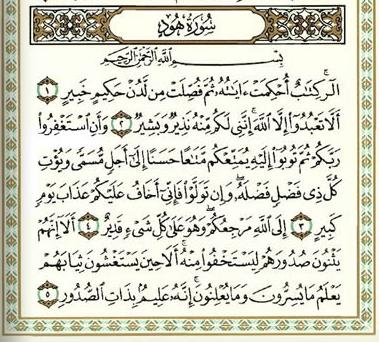 سُورَةُ هُودٍ
بِسْمِ اللَّهِ الرَّحْمَٰنِ الرَّحِيمِ
الٓر ۚ كِتَٰبٌ أُحْكِمَتْ ءَايَٰتُهُۥ ثُمَّ فُصِّلَتْ مِن لَّدُنْ حَكِيمٍ خَبِيرٍ ١
أَلَّا تَعْبُدُوٓا۟ إِلَّا ٱللَّهَ ۚ إِنَّنِى لَكُم مِّنْهُ نَذِيرٌ وَبَشِيرٌ ٢ وَأَنِ ٱسْتَغْفِرُوا۟
رَبَّكُمْ ثُمَّ تُوبُوٓا۟ إِلَيْهِ يُمَتِّعْكُم مَّتَٰعًا حَسَنًا إِلَىٰٓ أَجَلٍ مُّسَمًّى وَيُؤْتِ
كُلَّ ذِى فَضْلٍ فَضْلَهُۥ ۖ وَإِن تَوَلَّوْا۟ فَإِنِّىٓ أَخَافُ عَلَيْكُمْ عَذَابَ يَوْمٍ
كَبِيرٍ ٣ إِلَى ٱللَّهِ مَرْجِعُكُمْ ۖ وَهُوَ عَلَىٰ كُلِّ شَىْءٍ قَدِيرٌ ٤ أَلَآ إِنَّهُمْ
يَثْنُونَ صُدُورَهُمْ لِيَسْتَخْفُوا۟ مِنْهُ ۚ أَلَا حِينَ يَسْتَغْشُونَ ثِيَابَهُمْ
يَعْلَمُ مَا يُسِرُّونَ وَمَا يُعْلِنُونَ ۚ إِنَّهُۥ عَلِيمٌۢ بِذَاتِ ٱلصُّدُورِ ٥